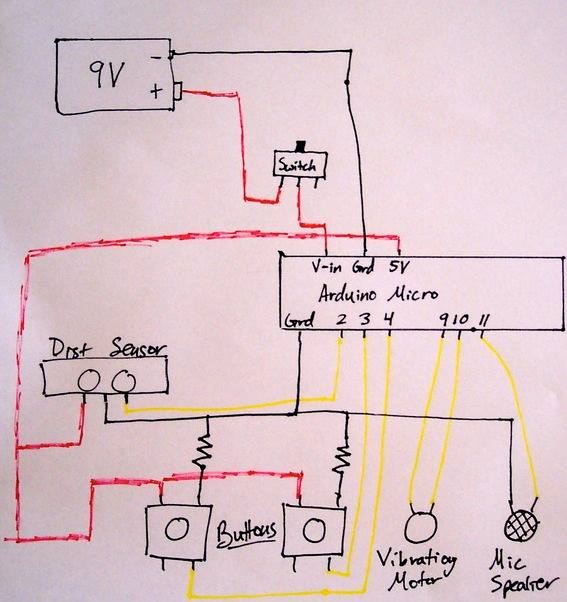 9V
-
+
Switch
V-in Grd 5V
Arduino Micro
Grd 2 3 4 9 10 11
Dist Sensor
Buttons
Vibration
Motor
Mic
Speaker